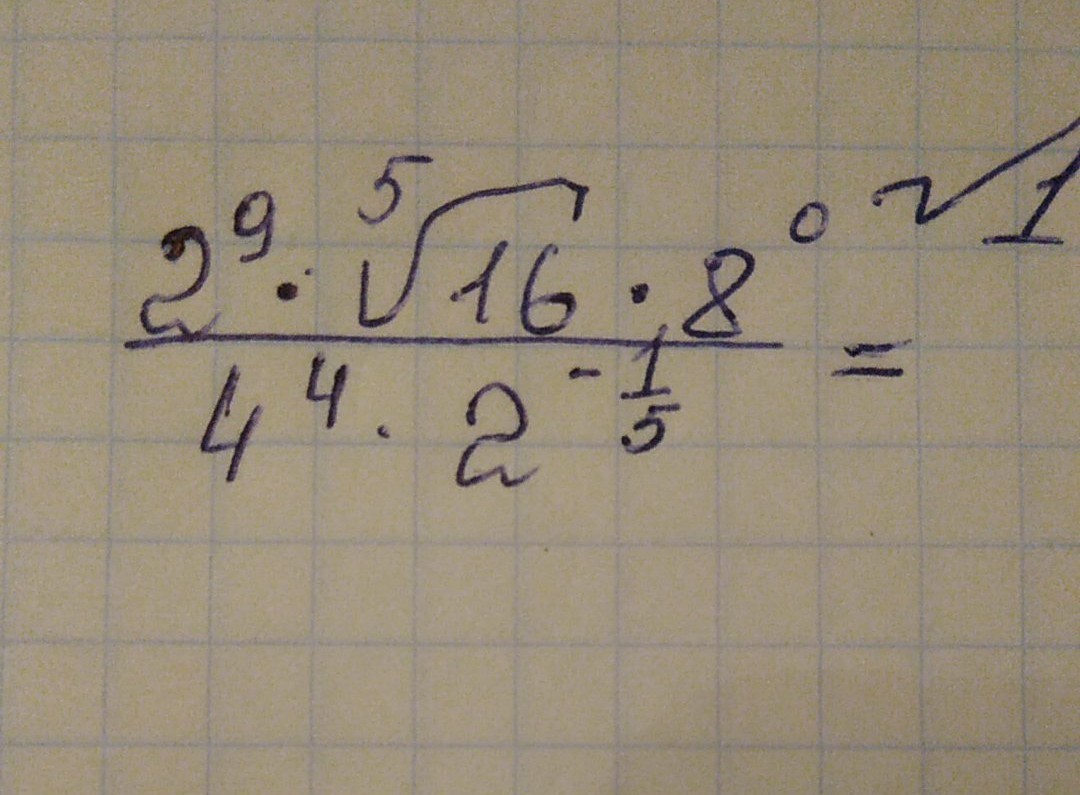 2⁹ · ⁵√16 · 8⁰ √1
4⁴ · 2^(-1/5) =